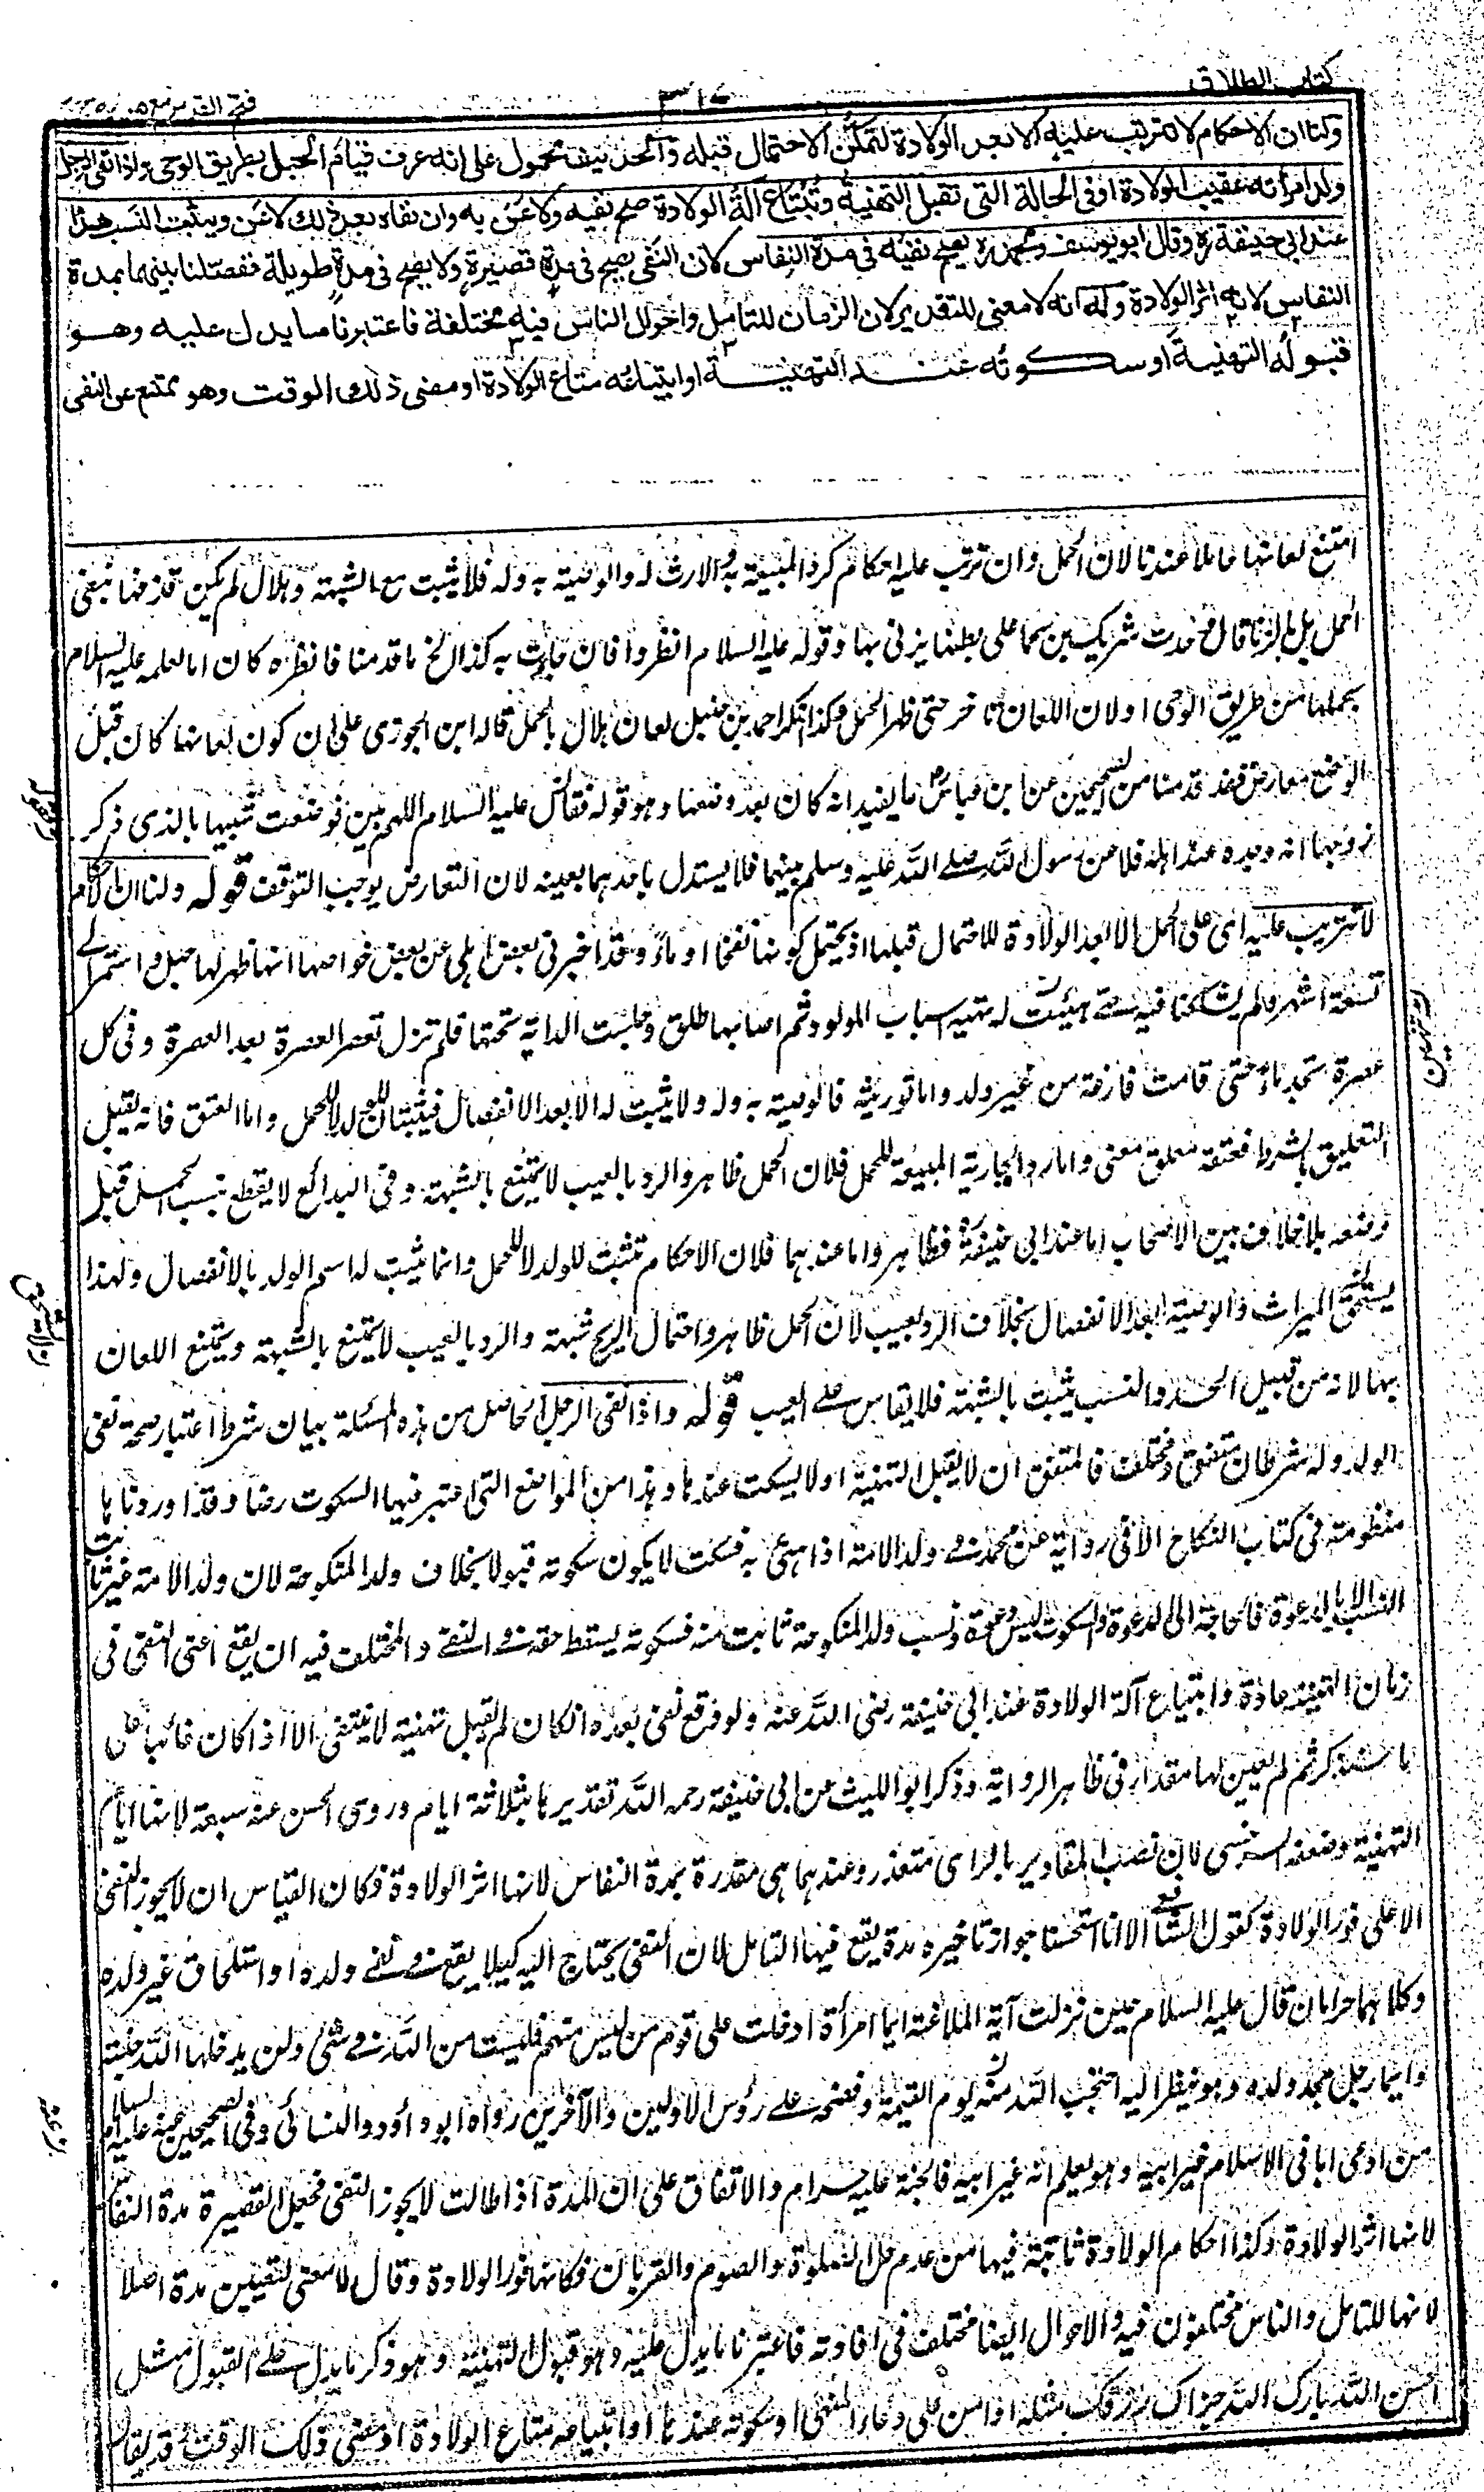 كتاب الطلاق
٣١٤
فتح القدير مع الهداية
ولنا ان الاحكام لا تترتب عليه الا بعد الولادة لتمكن الاحتمال قبله والحديث محمول على انه عرف قيام الحبل بطريق الوحى واذا نفى الرجل
ولد امرأته عقيب الولادة او فى الحالة التى تقبل التهنية وتبتاع آلة الولادة صح نفيه ولاعن به وان نفاه بعد ذلك لاعن ويثبت النسب هذا
عند ابى حنيفة رح وقال ابو يوسف ومحمد رح يصح نفيه فى مدة النفاس لان النفى يصح فى مدة قصيرة ولا يصح فى مدة طويلة ففصلنا بينهما بمدة
النفاس لانه اثر الولادة وله انه لا معنى للتقدير لان الزمان للتامل واحوال الناس فيه مختلفة فاعتبرنا ما يدل عليه وهو
قبوله التهنية او سكوته عند التهنية او ابتياعه متاع الولادة او مضى ذلك الوقت وهو ممتنع عن النفى
امتنع لعانها حاملا عندنا لان الحمل وان ترتب عليه احكام كرد المبيعة به والارث له والوصية به وله فلا يثبت مع الشبهة وهلال لم يكن قذفها بنفى
الحمل بل بالزنا قال وجدت شريك بن سحما على بطنها يزنى بها وقوله عليه السلام انظروا فان جاءت به كذا الخ ما قدمنا فانظره كان اما لعلمه عليه السلام
بحملها من طريق الوحى او لان اللعان تاخر حتى ظهر الحمل وكذا انكر احمد بن حنبل لعان هلال بالحمل قاله ابن الجوزى على ان كون لعانها كان قبل
الوضع معارض فقد قدمنا من الصحيحين عن ابن عباس ما يفيد انه كان بعد وضعها وهو قوله فقال عليه السلام اللهم بين فوضعت شبيها بالذى ذكر
زوجها انه وجده عند اهله فلاعن رسول الله صلى الله عليه وسلم بينهما فلا يستدل باحدهما بعينه لان التعارض يوجب التوقف قوله ولنا ان الاحكام
لا تترتب عليه اى على الحمل الا بعد الولادة للاحتمال قبلها اذ يحتمل كونها نفخا او ماء وقد اخبرنى بعض اهلى عن بعض خواصها انها ظهر لها حبل واستمر الى
تسعة اشهر ولم يشككنا فيه حتى هيئت له تهيئة اسباب المولود ثم اصابها طلق وجلست الداية تحتها فلم تزل تعصر العصرة بعد العصرة وفى كل
عصرة تجد ماء حتى قامت فارغة من غير ولد واما توريثه فالوصية به وله ولا يثبت له الا بعد الانفصال فيثبتان للولد لا للحمل واما العتق فانه يقبل
التعليق بالشرط فعتقه معلق معنى واما رد الجارية المبيعة للحمل فلان الحمل ظاهر والرد بالعيب لا يمتنع بالشبهة وفى البدائع لا يقطع نسب الحمل قبل
وضعه بلا خلاف بين الاصحاب اما عند ابى حنيفة فظاهر واما عندهما فلان الاحكام تثبت للولد لا للحمل وانما يثبت له اسم الولد بالانفصال ولهذا
يستحق الميراث والوصية بعد الانفصال بخلاف الرد بعيب لان الحمل ظاهر واحتمال الريح شبهة والرد بالعيب لا يمتنع بالشبهة ويمتنع اللعان
بها لانه من قبيل الحد والنسب يثبت بالشبهة فلا يقاس على العيب قوله واذا نفى الرجل الحاصل من هذه المسئلة بيان شرط اعتبار صحة نفى
الولد وله شرطان متفق ومختلف فالمتفق ان لا يقبل التهنية او لا يسكت عندها وهذا من المواضع التى اعتبر فيها السكوت رضا وقد اوردناها
منظومة فى كتاب النكاح الا فى رواية عن محمد فى ولد الامة اذا هنئ به فسكت لا يكون سكوته قبولا بخلاف ولد المنكوحة لان ولد الامة غير ثابت
النسب الا بالدعوة فالحاجة الى الدعوة والسكوت ليس دعوة ونسب ولد المنكوحة ثابت منه فسكوته يسقط حقه فى النفى والمختلف فيه ان يقع اعنى النفى فى
زمان التهنية عادة وابتياع آلة الولادة عند ابى حنيفة رضى الله عنه ولو وقع نفى بعده وان كان لم يقبل تهنية لا ينتفى الا اذا كان غائبا على
ما سنذكر ثم لم يعين لها مقدار فى ظاهر الرواية وذكر ابو الليث عن ابى حنيفة رحمه الله تقديرها بثلاثة ايام وروى الحسن عنه سبعة لانها ايام
التهنية وضعفه السرخسى لان نصب المقادير بالراى متعذر وعندهما هى مقدرة بمدة النفاس لانها اثر الولادة فكان القياس ان لا يجوز النفى
الا على فور الولادة كقول الشافعى الا انا استحسنا جواز تاخيره مدة يقع فيها التامل لان النفى يحتاج اليه كيلا يقع فى نفى ولده او استلحاق غير ولده
وكلاهما حرامان قال عليه السلام حين نزلت آية الملاعنة ايما امرأة ادخلت على قوم من ليس منهم فليست من الله فى شئ ولن يدخلها الله جنته
وايما رجل جحد ولده وهو ينظر اليه احتجب الله منه يوم القيمة وفضحه على رؤس الاولين والآخرين رواه ابو داؤد والنسائى وفى الصحيحين عنه عليه السلام
من ادعى ابا فى الاسلام غير ابيه وهو يعلم انه غير ابيه فالجنة عليه حرام والاتفاق على ان المدة اذا طالت لا يجوز النفى فجعل القصيرة مدة النفاس
لانها اثر الولادة وكذا احكام الولادة ثابتة فيها من عدم حل الصلوة والصوم والقربان فكانها فور الولادة وقال لا معنى لتعيين مدة اصلا
لانها للتامل والناس مختلفون فيه والاحوال ايضا مختلف فى افادته فاعتبرنا ما يدل عليه وهو قبول التهنية وهو ذكر ما يدل على القبول مثل
احسن الله بارك الله جزاك الله رزقك الله مثله او امن على دعاء المهنى او سكوته عندها او ابتياعه متاع الولادة او مضى ذلك الوقت وقد يقال